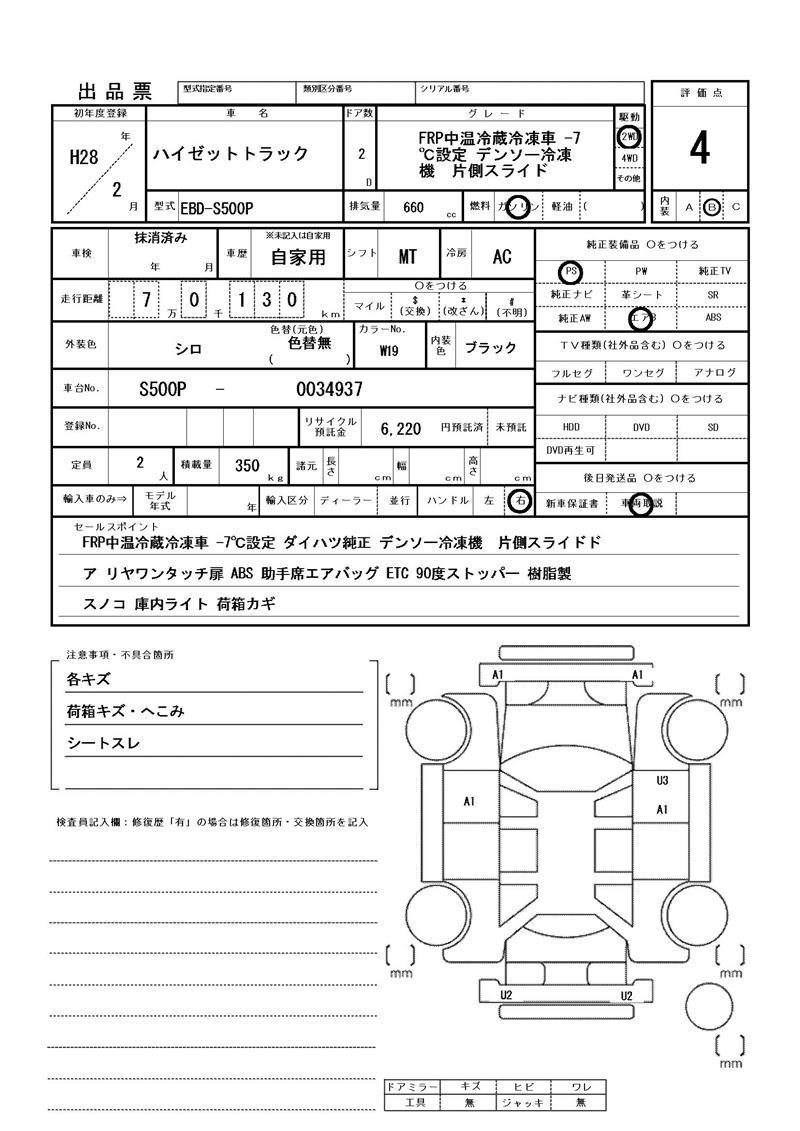 出品票
型式指定番号 類別区分番号 シリアル番号
評価点
4
内装 A B C
初年度登録 車名 ドア数 グレード 駆動
H28 年 2 月
ハイゼットトラック
2 D
FRP中温冷蔵冷凍車 -7
℃設定 デンソー冷凍
機 片側スライド
2WD
4WD
その他
型式 EBD-S500P 排気量 660 cc 燃料 ガソリン 軽油 ( )
車検 抹消済み 年 月 車歴 ※未記入は自家用 自家用 シフト MT 冷房 AC
走行距離 7 0 万 千 1 3 0 km
〇をつける
マイル $(交換) *(改ざん) #(不明)
外装色 シロ 色替(元色) 色替無 ( ) カラーNo. W19 内装色 ブラック
車台No. S500P - 0034937
登録No. リサイクル預託金 6,220 円預託済 未預託
定員 2 人 積載量 350 kg 諸元 長さ cm 幅 cm 高さ cm
輸入車のみ⇒ モデル年式 年 輸入区分 ディーラー 並行 ハンドル 左 右
純正装備品 〇をつける
PS PW 純正TV
純正ナビ 革シート SR
純正AW エアB ABS
TV種類(社外品含む) 〇をつける
フルセグ ワンセグ アナログ
ナビ種類(社外品含む) 〇をつける
HDD DVD SD
DVD再生可
後日発送品 〇をつける
新車保証書 車両取説
セールスポイント
FRP中温冷蔵冷凍車 -7℃設定 ダイハツ純正 デンソー冷凍機 片側スライドド
ア リヤワンタッチ扉 ABS 助手席エアバッグ ETC 90度ストッパー 樹脂製
スノコ 庫内ライト 荷箱カギ
注意事項・不具合箇所
各キズ
荷箱キズ・へこみ
シートスレ
検査員記入欄：修復歴「有」の場合は修復箇所・交換箇所を記入
A1 A1
mm mm
U3
A1 A1
mm mm
U2 U2
mm
ドアミラー キズ ヒビ ワレ
工具 無 ジャッキ 無